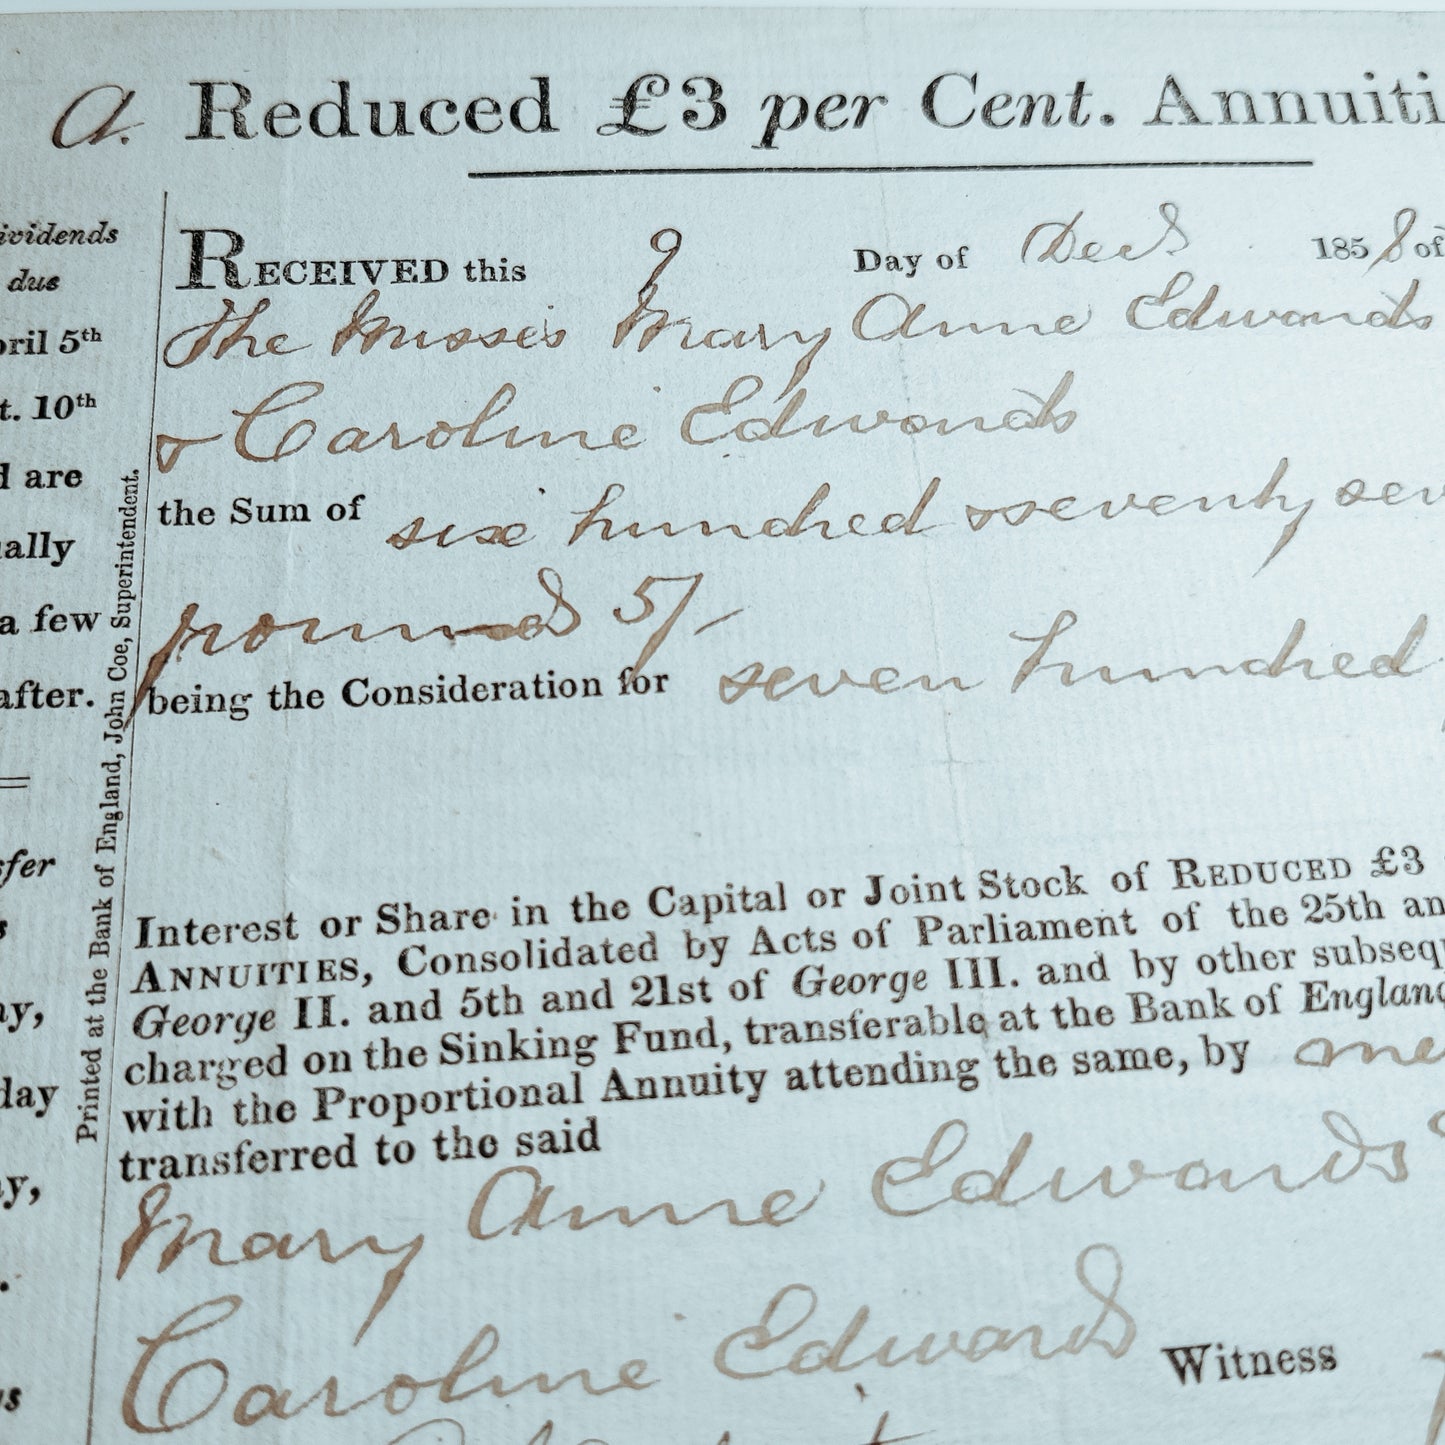 a. Reduced £3 per Cent. Annuiti
RECEIVED this 9 Day of Decr 1858 of
The Misses Mary Anne Edwards
& Caroline Edwards
the Sum of six hundred & seventy sev
pounds 5/-
being the Consideration for seven hundred
Interest or Share in the Capital or Joint Stock of REDUCED £3
ANNUITIES, Consolidated by Acts of Parliament of the 25th an
George II. and 5th and 21st of George III. and by other subsequ
charged on the Sinking Fund, transferable at the Bank of England
with the Proportional Annuity attending the same, by me
transferred to the said
Mary Anne Edwards
Caroline Edwards
Witness
ividends
due
pril 5th
t. 10th
d are
ually
a few
after.
sfer
s
ay,
day
ay,
us
Printed at the Bank of England, John Coe, Superintendent.